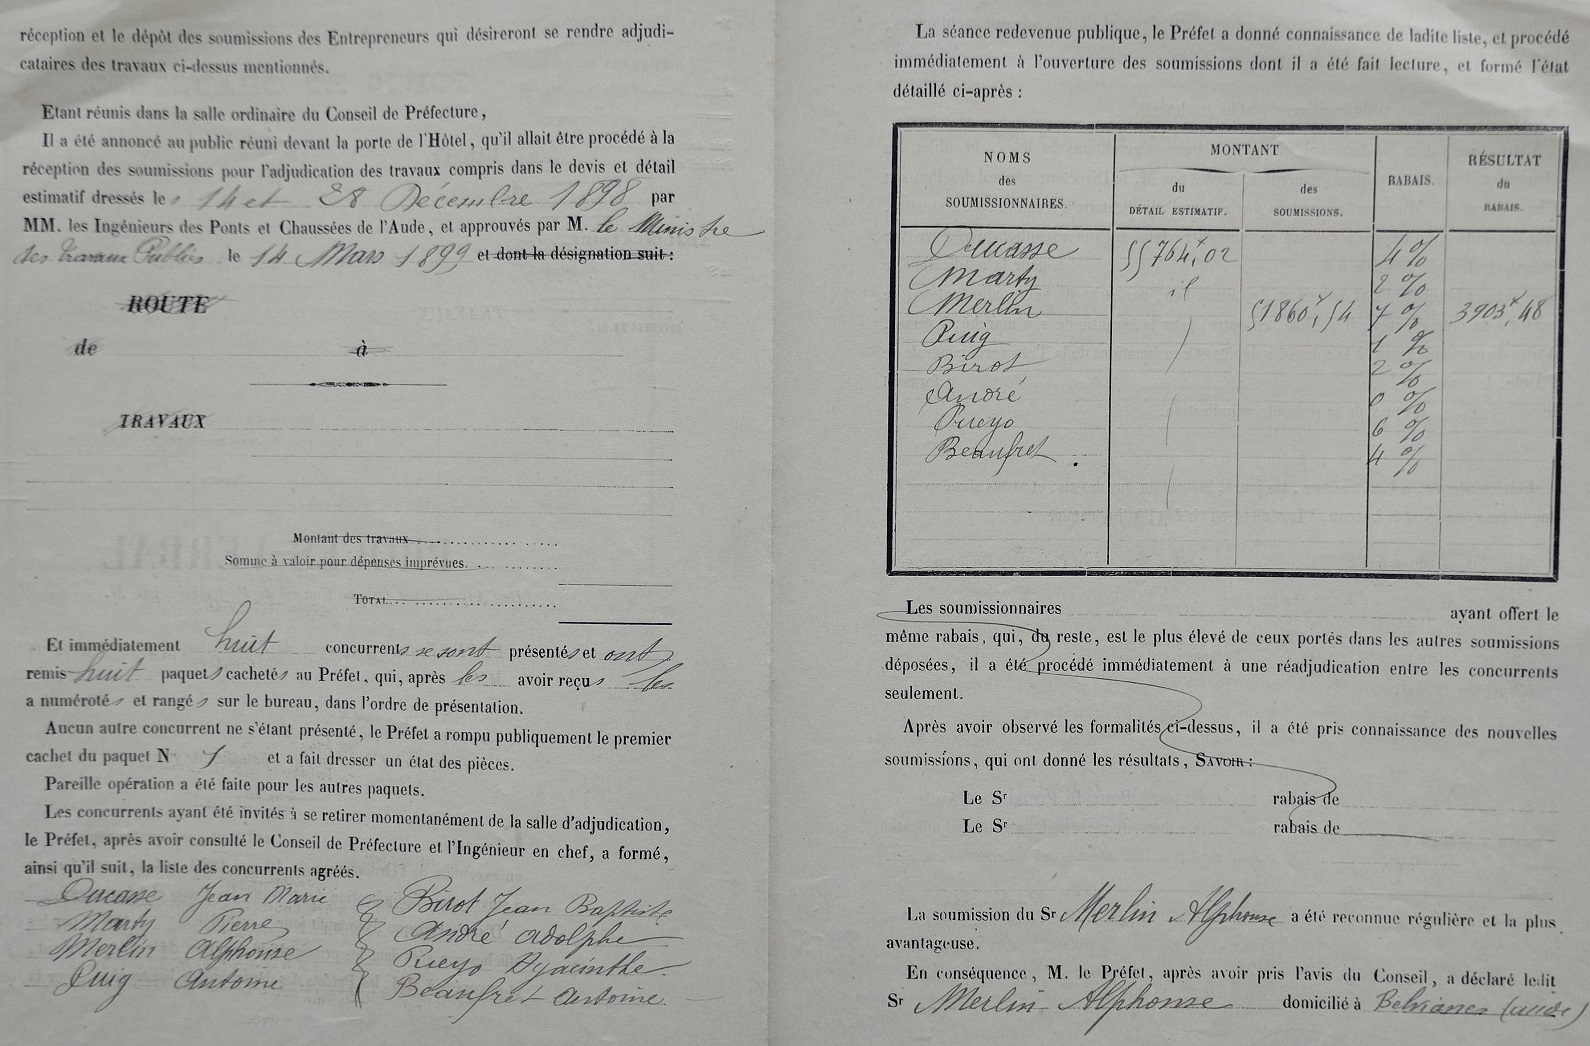 réception et le dépôt des soumissions des Entrepreneurs qui désireront se rendre adjudi-
cataires des travaux ci-dessus mentionnés.
Etant réunis dans la salle ordinaire du Conseil de Préfecture,
Il a été annoncé au public réuni devant la porte de l'Hôtel, qu'il allait être procédé à la
réception des soumissions pour l'adjudication des travaux compris dans le devis et détail
estimatif dressés les 14 et 28 Décembre 1898 par
MM. les Ingénieurs des Ponts et Chaussées de l'Aude, et approuvés par M. le Ministre
des Travaux Publics le 14 Mars 1899 et dont la désignation suit :
ROUTE
de à
TRAVAUX
Montant des travaux
Somme à valoir pour dépenses imprévues.
TOTAL
Et immédiatement huit concurrents se sont présentés et ont
remis huit paquets cachetés au Préfet, qui, après les avoir reçus les
a numérotés et rangés sur le bureau, dans l'ordre de présentation.
Aucun autre concurrent ne s'étant présenté, le Préfet a rompu publiquement le premier
cachet du paquet N° 1 et a fait dresser un état des pièces.
Pareille opération a été faite pour les autres paquets.
Les concurrents ayant été invités à se retirer momentanément de la salle d'adjudication,
le Préfet, après avoir consulté le Conseil de Préfecture et l'Ingénieur en chef, a formé,
ainsi qu'il suit, la liste des concurrents agréés.
Ducasse Jean Marie
Marty Pierre
Merlin Alphonse
Puig Antoine
Birot Jean Baptiste
André Adolphe
Pueyo Hyacinthe
Beaufret Antoine.
La séance redevenue publique, le Préfet a donné connaissance de ladite liste, et procédé
immédiatement à l'ouverture des soumissions dont il a été fait lecture, et formé l'état
détaillé ci-après :
NOMS des SOUMISSIONNAIRES.
MONTANT
du DÉTAIL ESTIMATIF.
des SOUMISSIONS.
RABAIS.
RÉSULTAT du RABAIS.
Ducasse 55764f,02 4 %
Marty id 2 %
Merlin 51860f,54 7 % 3903f,48
Puig 1 %
Birot 2 %
André %
Pueyo 6 %
Beaufret 4 %
Les soumissionnaires ayant offert le
même rabais, qui, du reste, est le plus élevé de ceux portés dans les autres soumissions
déposées, il a été procédé immédiatement à une réadjudication entre les concurrents
seulement.
Après avoir observé les formalités ci-dessus, il a été pris connaissance des nouvelles
soumissions, qui ont donné les résultats, SAVOIR :
Le Sr rabais de
Le Sr rabais de
La soumission du Sr Merlin Alphonse a été reconnue régulière et la plus
avantageuse.
En conséquence, M. le Préfet, après avoir pris l'avis du Conseil, a déclaré ledit
Sr Merlin Alphonse domicilié à Belvianes (Aude)